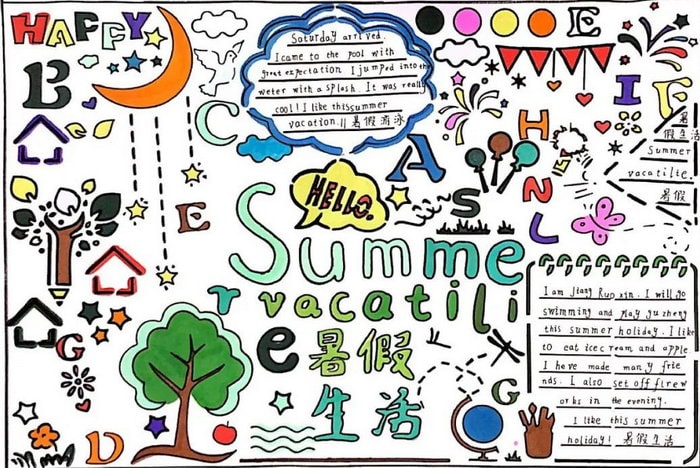 HAPPY
E
B
I
F
Saturday arrived.
I came to the pool with
great expectation I jumped into the
weter with a splash. It was really
cool! I like thissummer
vacation.!! 暑假游泳
C
A
H
暑
假生活
Summer
vacatilie.
暑假
HELLO.
E
S
N
L
Summe
r vacatili
e 暑假
生活
G
D
G
I am Jiang Ruo xin. I will go
swimming and play gu zheng
this summer holiday. I like
to eat icec ream and apple
I heve made many frie
nds. I also set off firew
orks in the evening.
I like this summer
holiday! 暑假生活